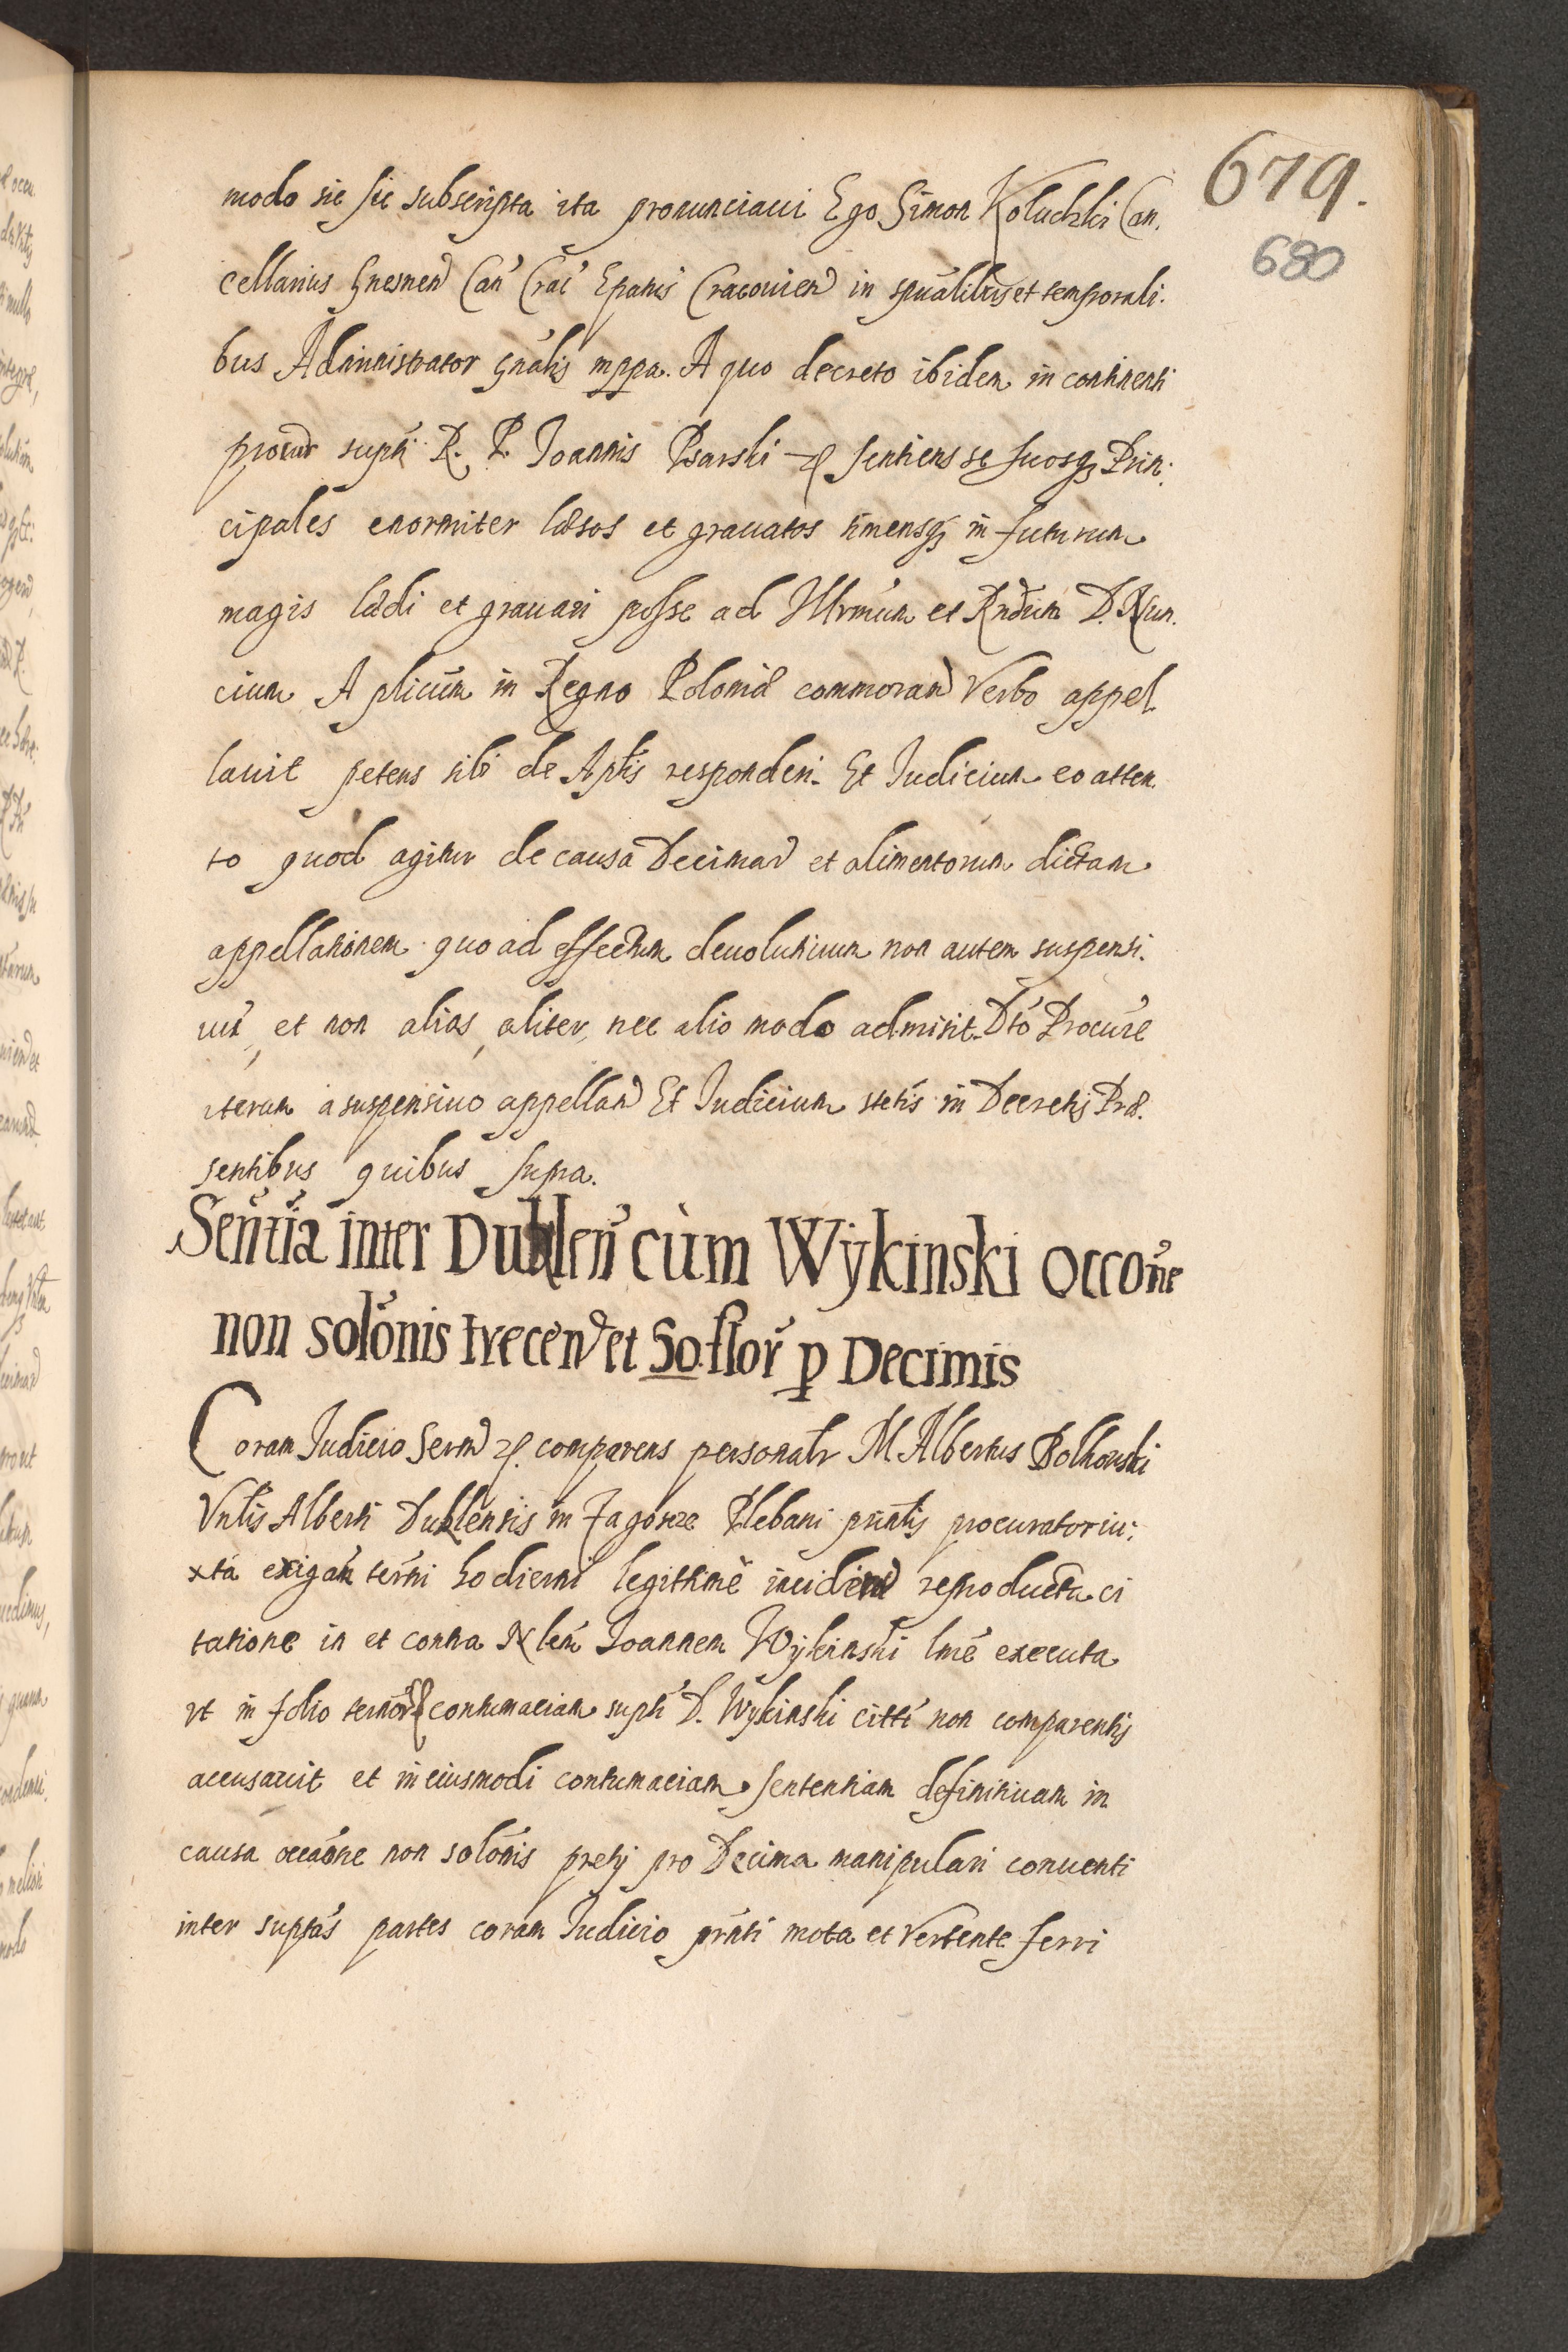 679.
680
modo sic sic subscripta ita pronunciaui Ego Simon Kołudzki Can,
cellarius Gnesnen Can Crac Epatus Cracouien in spualibus et temporali.
bus Administrator Gnalis mppa. A quo decreto ibidem in continenti
procur supti R. P. Joannis Psarski sentiens se suosq Prin:
cipales enormiter læsos et grauatos timensq in futurum
magis lædi et grauari posse ad Illrmum et Rndum D. Nun.
cium Aplicum in Regno Poloniæ commoran verbo appel
lauit petens sibi de Aplis responderi. Et Judicium eo atten.
to quod agitur de causa Decimar et alimentorum dictam
appellationem quo ad effectum deuolutiuum non autem suspensi.
uu, et non alias, aliter, nec alio modo admisit. Dto Procure
iterum a suspensiuo appellan Et Judicium stetis in Decretis Præ.
sentibus quibus supra.
Sentia inter Dublen cum Wÿkinski occone
non solonis trecen et 50. flor p Decimis
Coram Judicio Seren comparens personalr M Albertus Polkowski
Vnlis Alberti Dublensis in Plebani prntis procuratoriu:
xta exigan termi hodierni legitime inciden reproducta ci
tatione in et contra Nlem Joannem Wÿkinski lme executa
vt in folio contumaciam supti D. Wykinski citti non comparentis
accusauit et in eiusmodi contumaciam sententiam definitiuam in
causa occaone non solonis pretij pro Decima manipulari conuenti
inter suptas partes coram Judicio prnti mota et vertente ferri